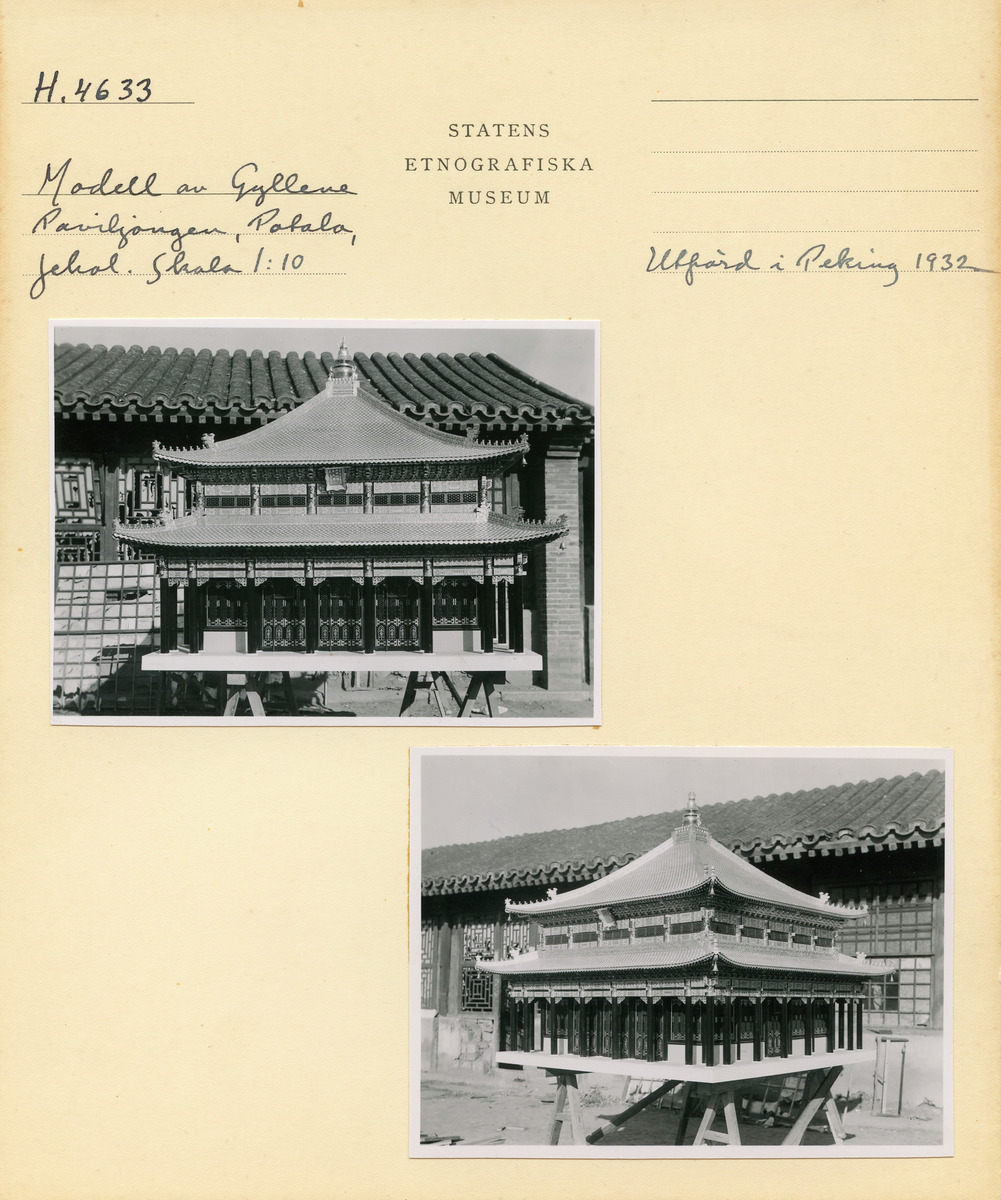 H.4633
STATENS
ETNOGRAFISKA
MUSEUM
Modell av Gyllene
Paviljongen, Potala,
Jehol. Skala 1:10
Utförd i Peking 1932